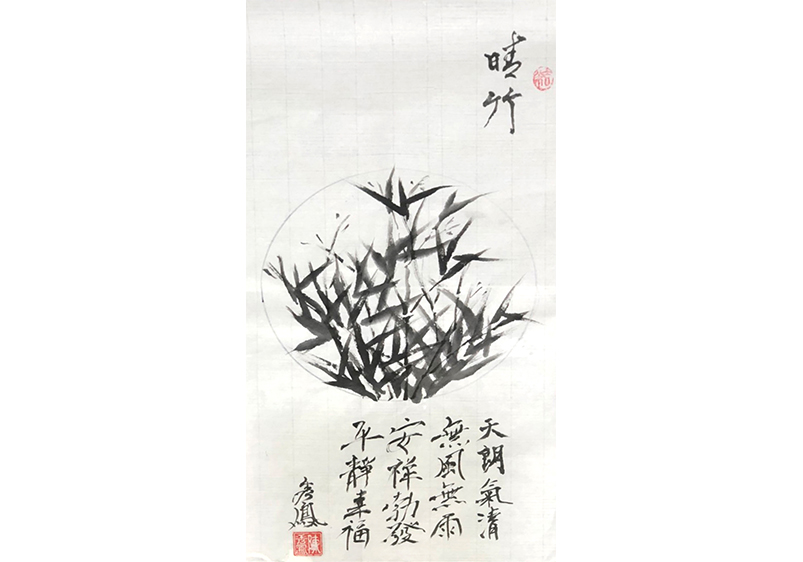 晴竹
天朗氣清
無風無雨
安祥勃發
平靜幸福
鳳